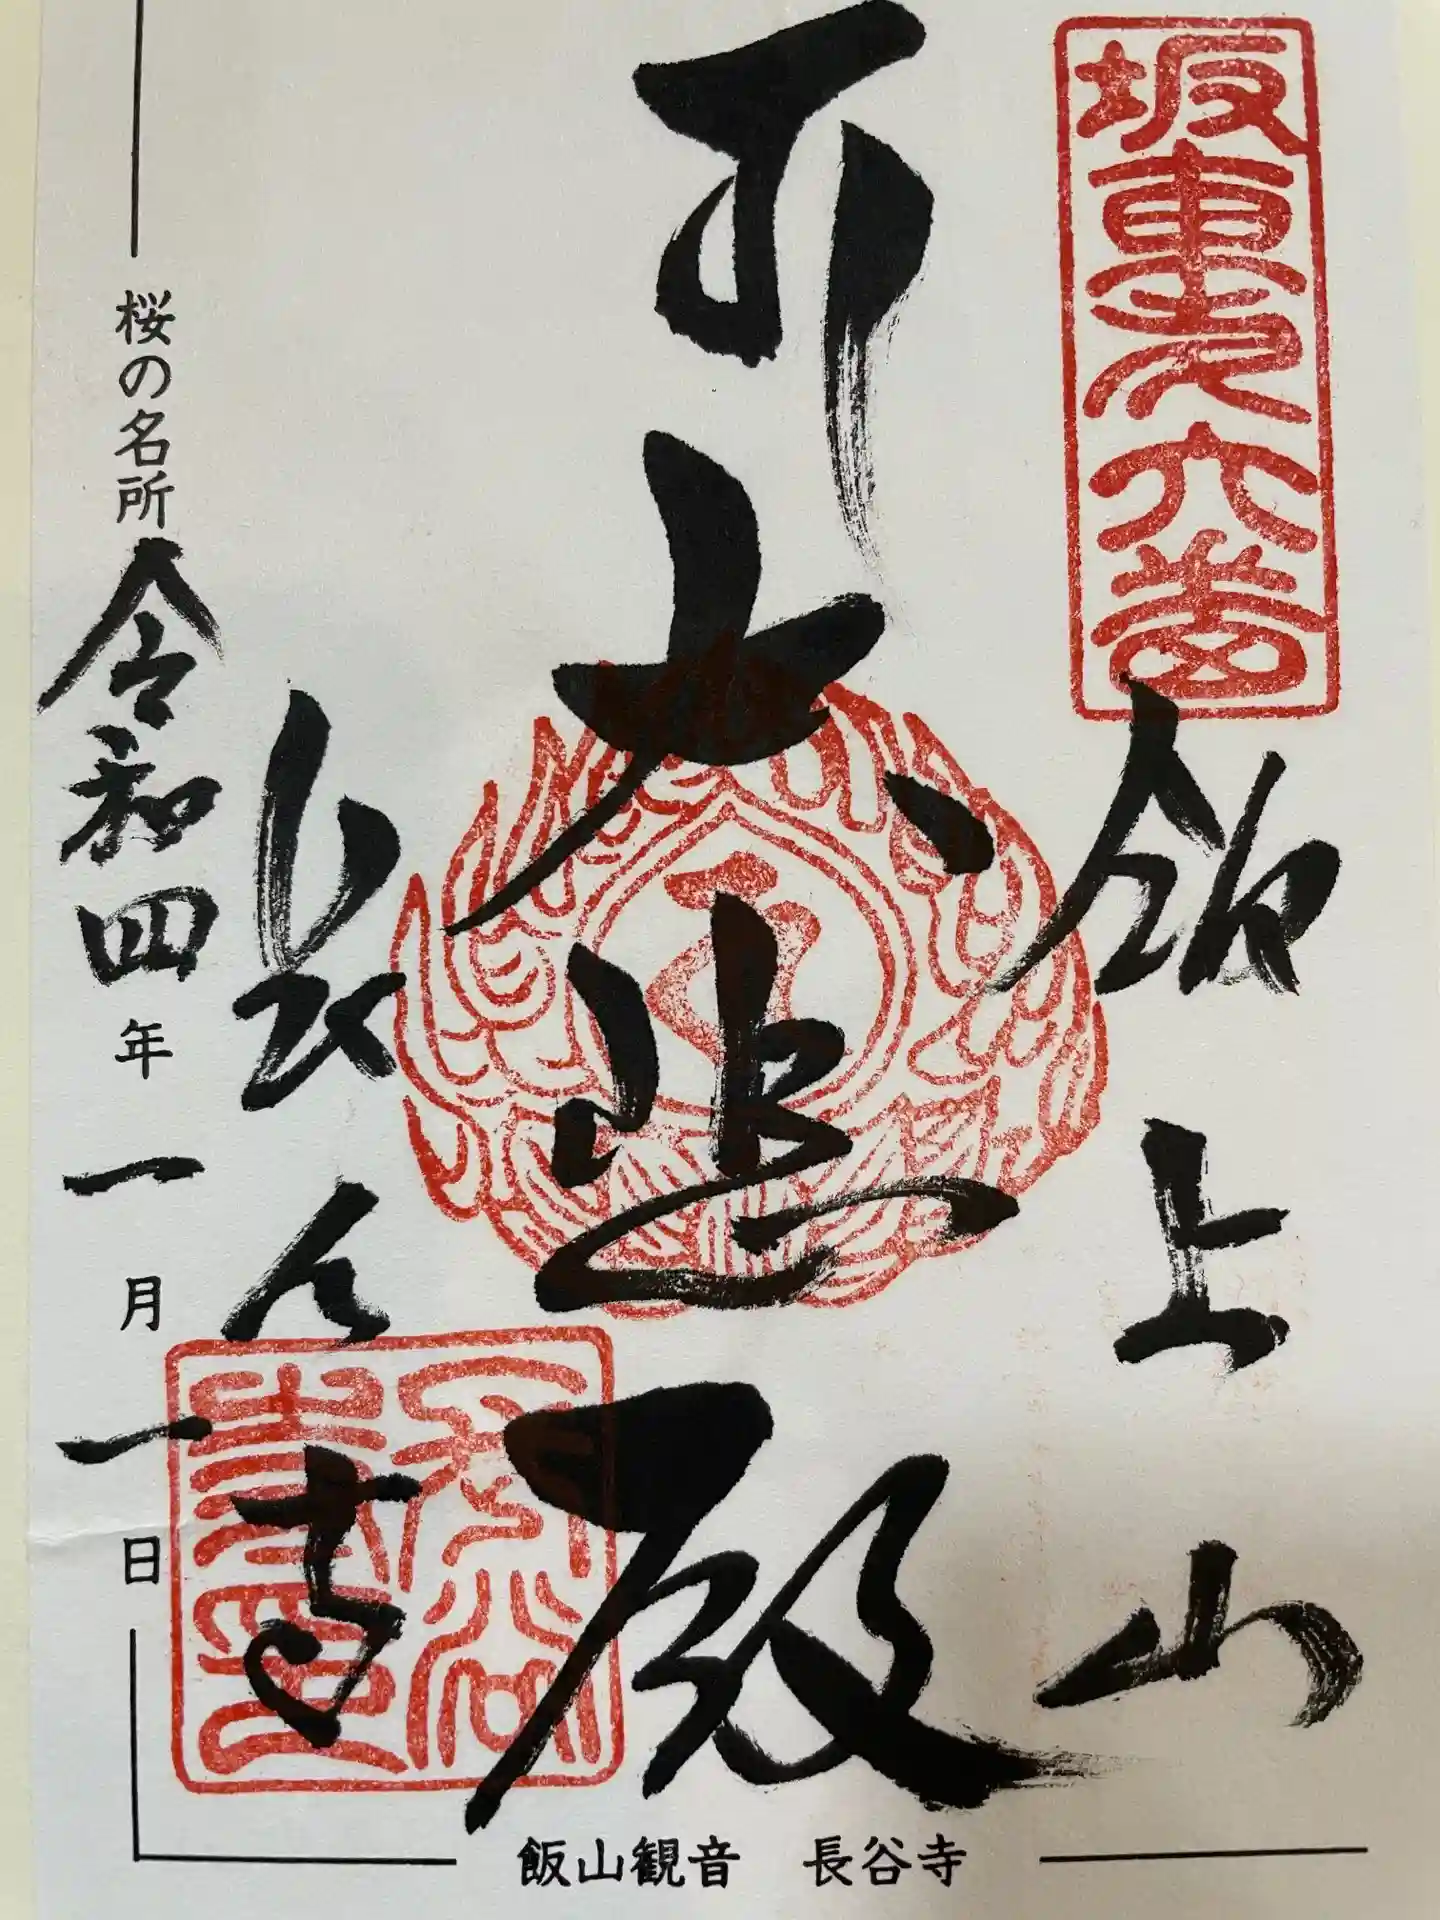 坂東第六番
飯上山
大悲殿
長谷寺
長谷寺印
桜の名所
令和四年一月一日
飯山観音　長谷寺